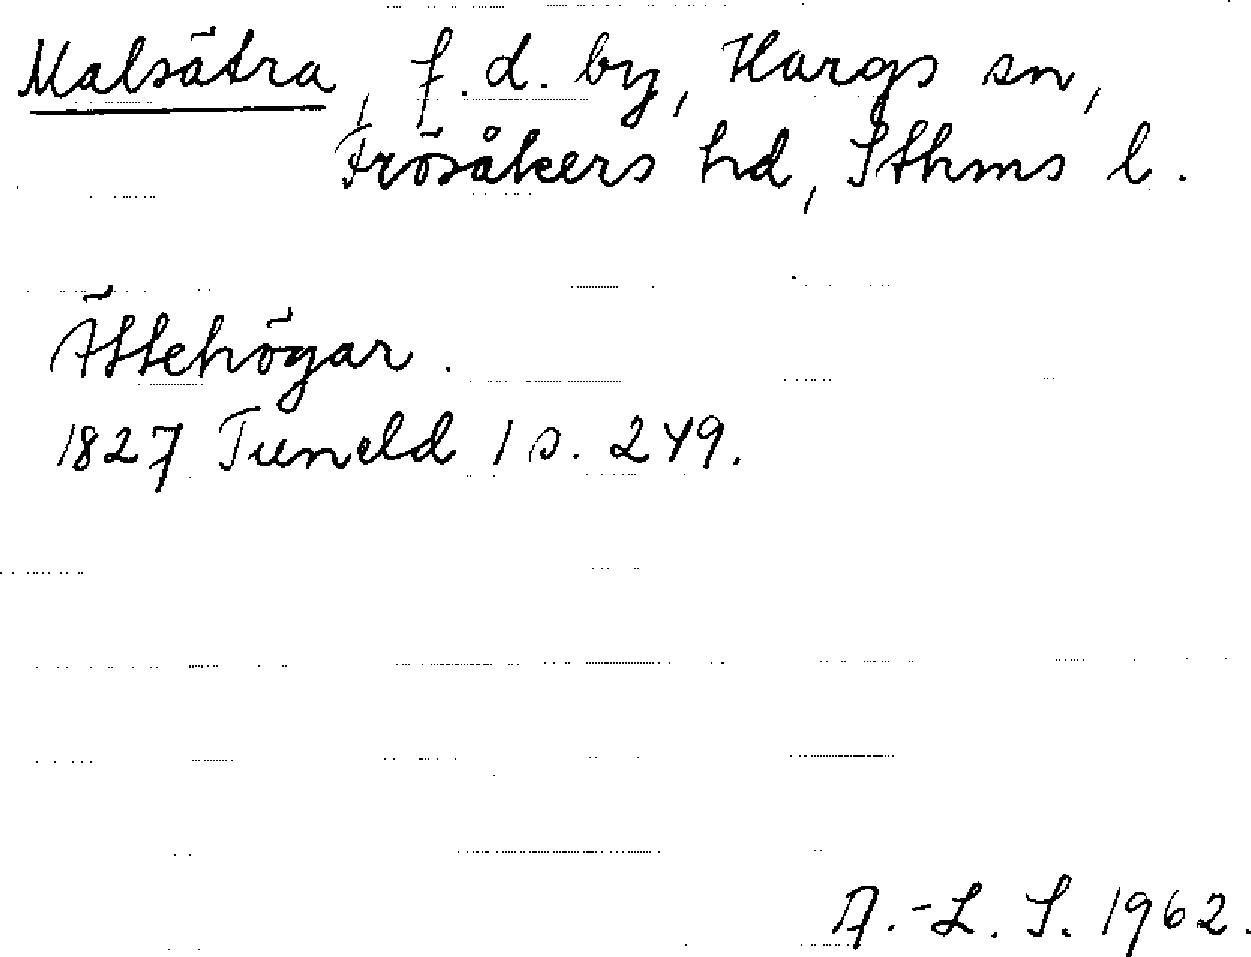 Malsätra, f.d. by, Hargs sn,
Frösåkers hd, Sthms l.
Ättehögar.
1827 Tuneld 1 s. 249.
A.-L. S. 1962.